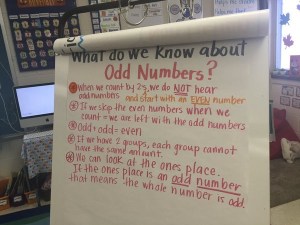 What do we Know about
Odd Numbers?
When we count by 2s, we do NOT hear
odd numbers and start with an EVEN number
If we skip the even numbers when we
count = we are left with the odd numbers
Odd + odd = even
If we have 2 groups, each group cannot
have the same amount.
We can look at the ones place.
If the ones place is an odd number
that means the whole number is odd.